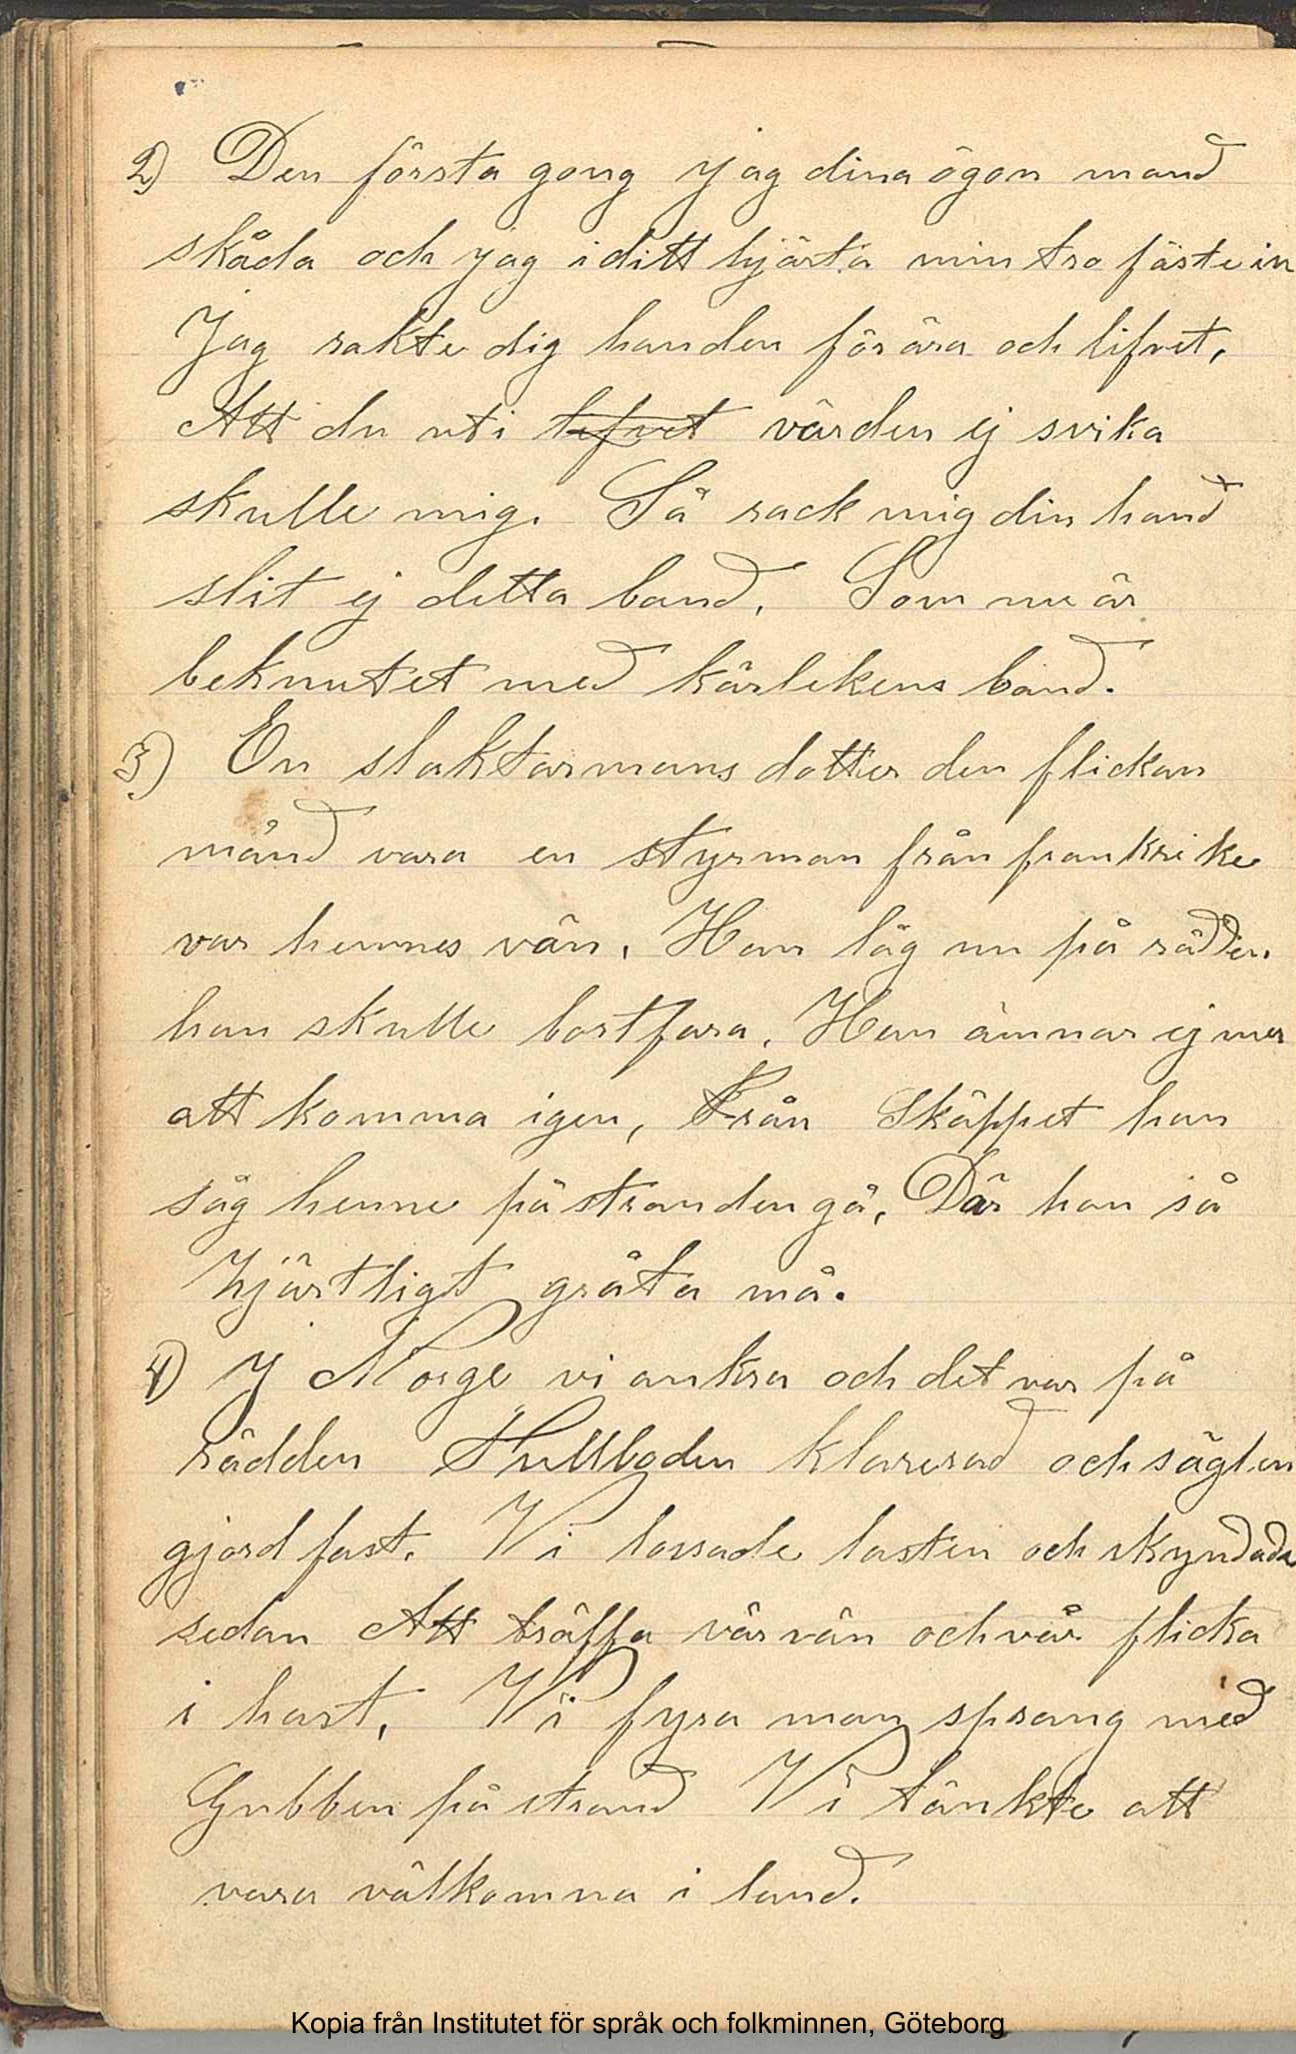 2) Den första gong jag dina ögon mand
skåda och jag i ditt hjärta min tro fäste in
Jag rakte dig handen för ära och lifvet,
Att du uti lifvet värden ej svika
skulle mig. Så rack mig din hand
slit ej detta band. Som nu är
beknutet med kärlekens band.
3) En slaktarmans dotter den flickan
månd vara en styrman från frankrike
var hennes vän. Han låg nu på rädden
han skulle bortfara. Han ämnar ej mer
att komma igen, Från Skäppet han
såg henne på stranden gå, Där hon så
hjärtligt gråta må.
4) I Norge vi ankra och det var på
rädden Hullboden klarerad och säglen
gjord fast. Vi lossade lasten och skyndade
sedan Att träffa vår vän och vår flicka
i hast, Vi fyra man sprang med
Gubben på strand Vi tänkte att
vara välkomna i land.
Kopia från Institutet för språk och folkminnen, Göteborg